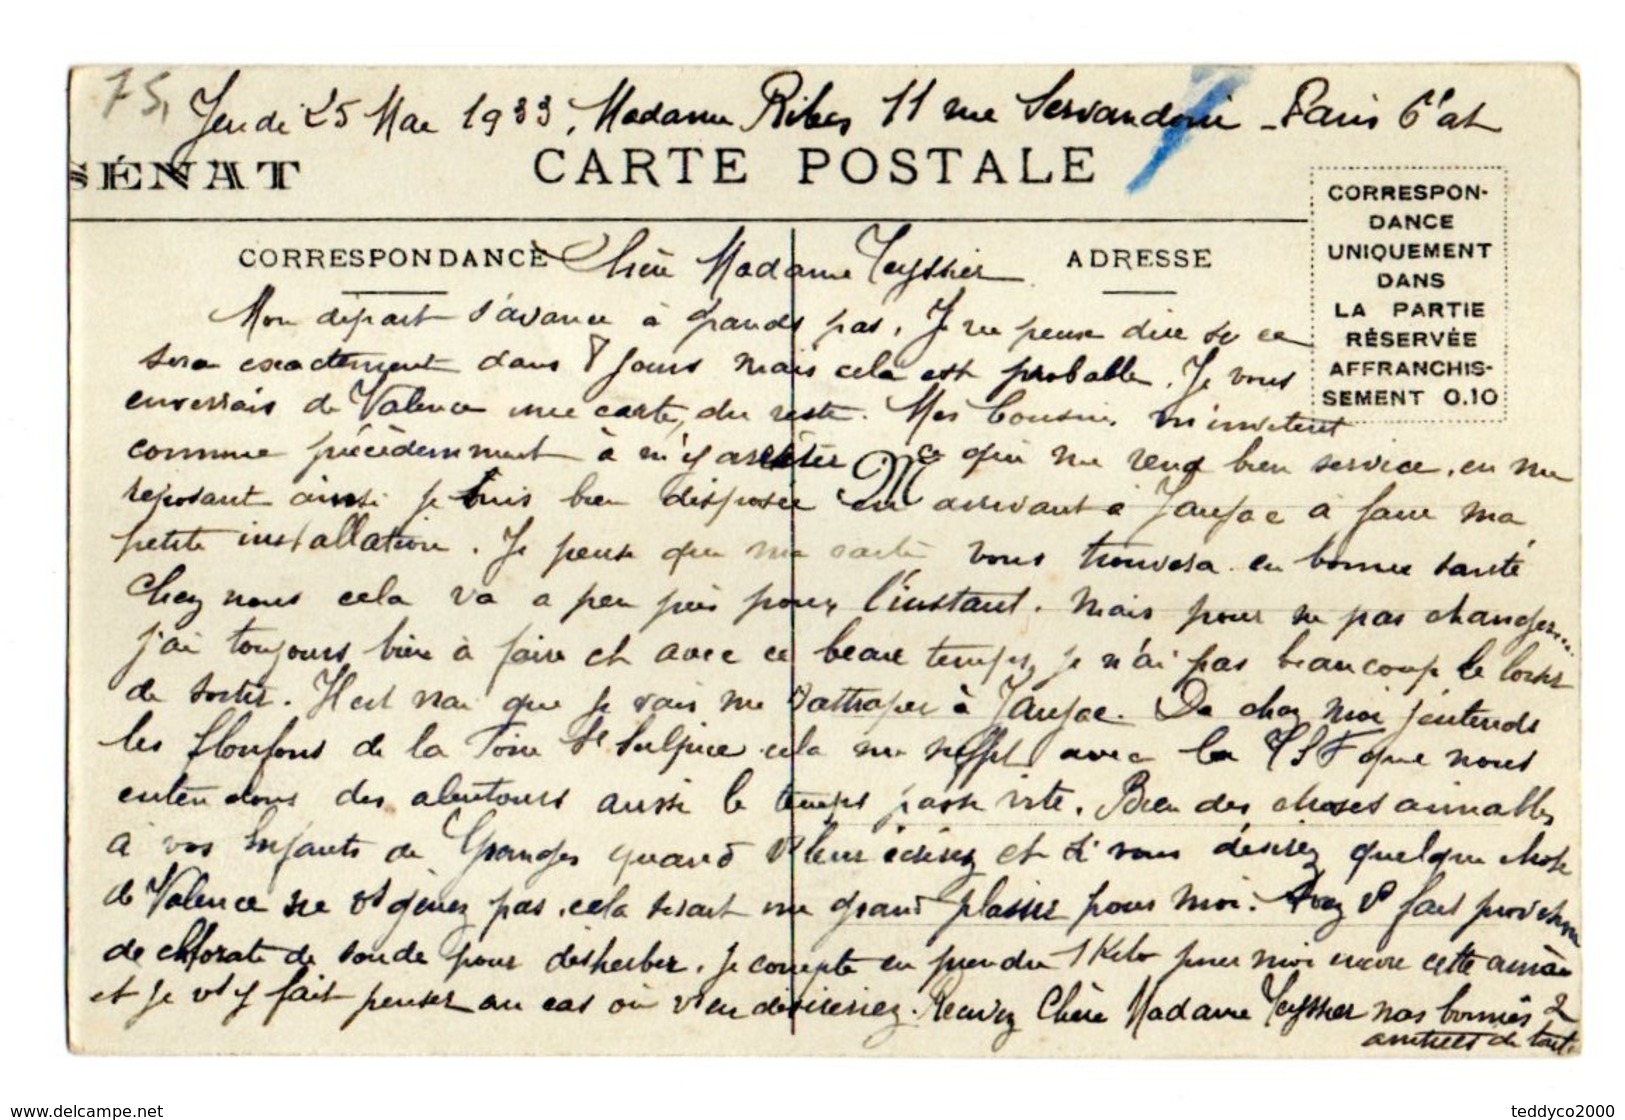 75,
Jeudi 25 Mai 1933, Madame Ribes 11 rue Servandoni - Paris 6e at
SÉNAT
CARTE POSTALE
CORRESPON-
DANCE
UNIQUEMENT
DANS
LA PARTIE
RÉSERVÉE
AFFRANCHIS-
SEMENT 0.10
CORRESPONDANCE
ADRESSE
Chère Madame Teyssier
Mon départ s'avance à grands pas. Je ne peux dire si ce
sera exactement dans 8 jours mais cela est probable. Je vous
enverrais de Valence une carte, du reste. Mes Cousins m'invitent
comme précédemment à m'y arrêter ce qui me rend bien service, en me
reposant ainsi je suis bien disposée en arrivant à Jaujac à faire ma
petite installation. Je pense que ma carte vous trouvera en bonne santé
Chez nous cela va a peu près pour l'instant. Mais pour ne pas changer...
j'ai toujours bien à faire et avec ce beau temps, je n'ai pas beaucoup le loisir
de sortir. Il est vrai que je vais me rattraper à Jaujac. De chez moi j'entends
les flonflons de la Foire St Sulpice cela me suffit avec la TSF que nous
entendons des alentours aussi le temps passe vite. Bien des choses aimables
à vos Enfants de Granges quand vs leur écrirez et si vous désirez quelque chose
de Valence ne vs gênez pas, cela serait un grand plaisir pour moi. Avez vs fait provision
de chlorate de soude pour désherber. Je compte en prendre 1 Kilo pour moi encore cette année
et je vs y fait penser au cas où vs en désireriez. Recevez Chère Madame Teyssier nos bonnes &
amitiés de tout
teddyco2000
https://www.delcampe.net